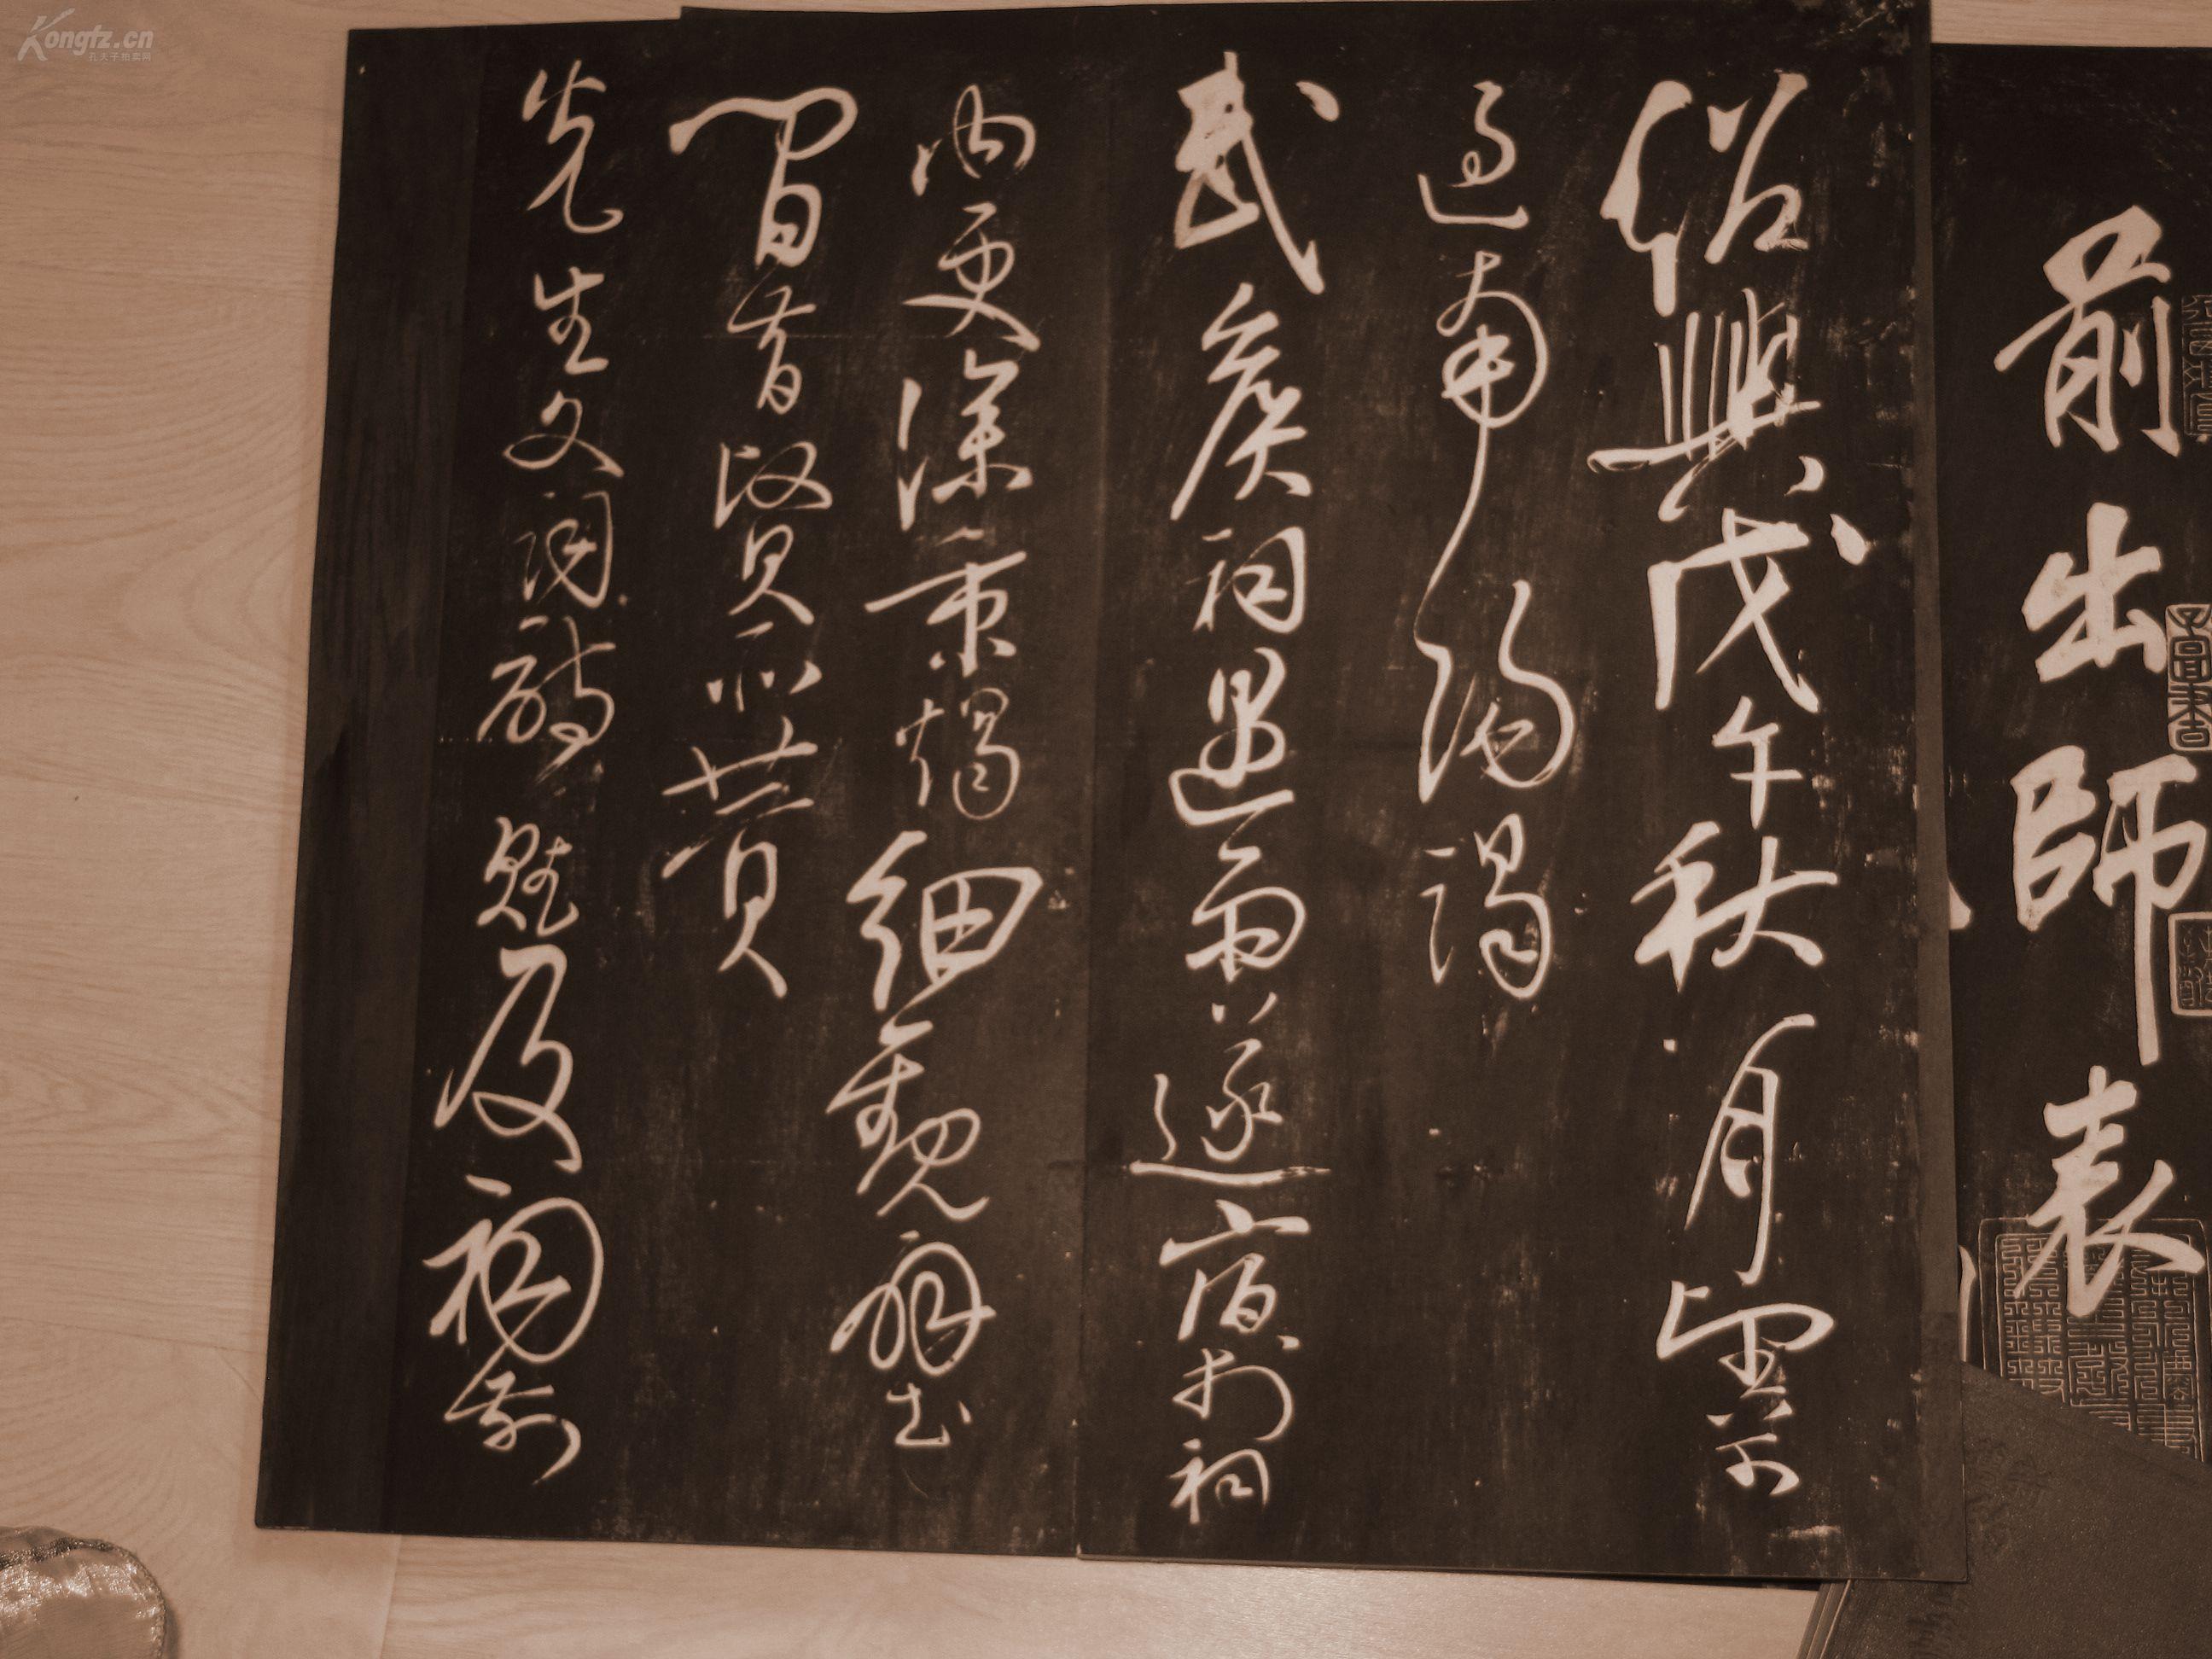 前出師表
紹興戊午秋月望前
過南陽謁
武侯祠遇雨遂宿於祠
內更深秉燭細觀壁
間昔賢所贊
先生文詞詩賦及祠前
Kongfz.cn
孔夫子旧书网